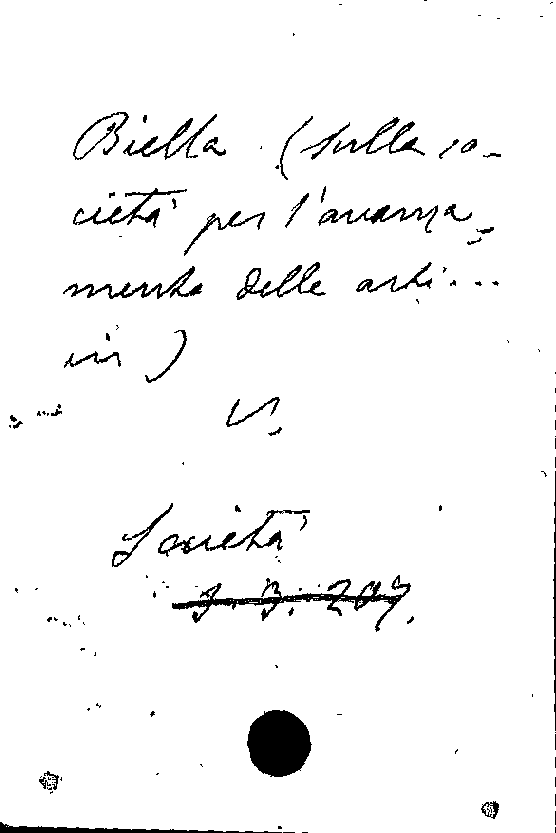 Biella (sulla so-
cietà per l'avanza,
mento delle arti...
in)
V.
Società